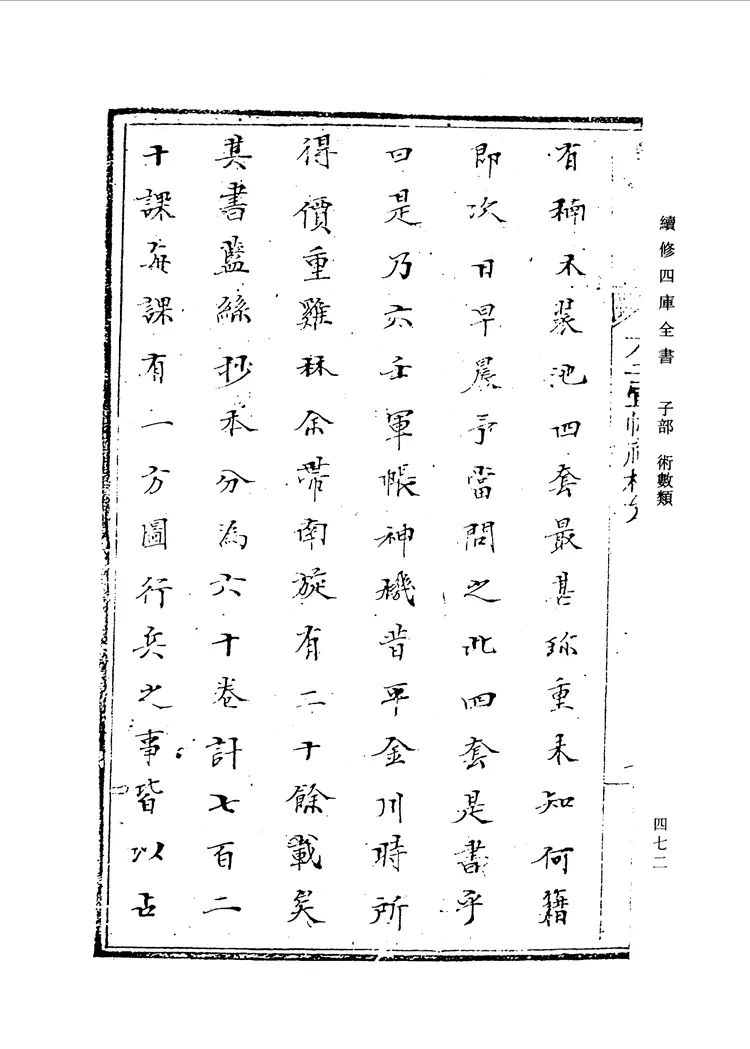 續修四庫全書 子部 術數類
四七二
有稱未裝池四套最甚珍重未知何籍
即次日早晨予嘗問之此四套是書乎
曰是乃六壬軍帳神機昔平金川時所
得價重雞林余帶南旋有二十餘載矣
其書藍絲抄本分為六十卷計七百二
十課每課有一方圖行兵之事皆以占